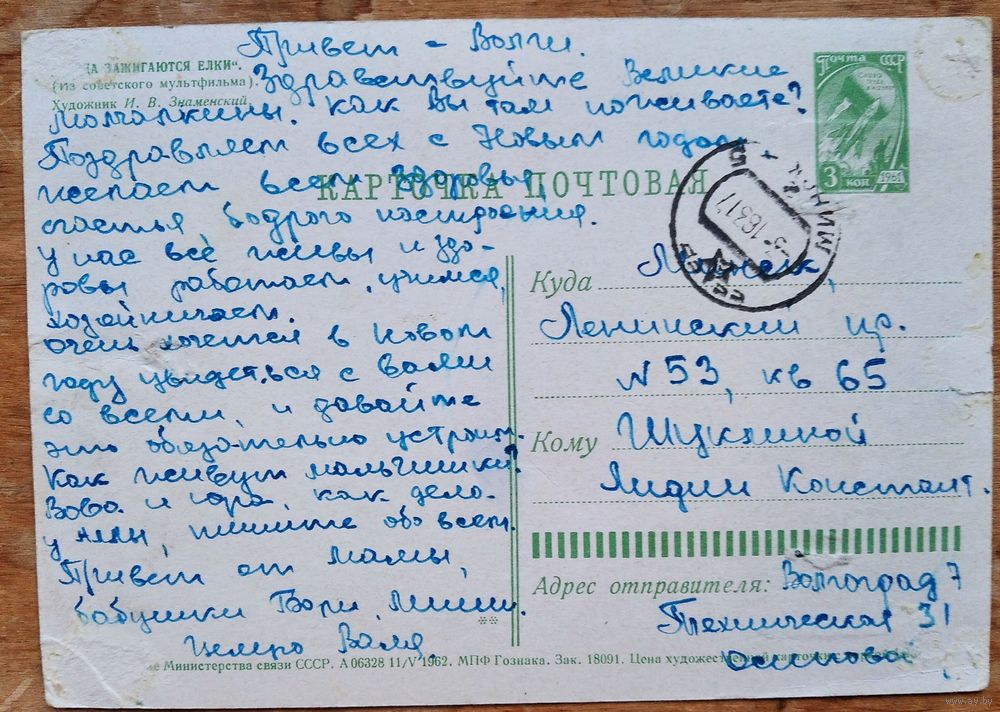 Привет - Волги.
ЗА ЗАЖИГАЮТСЯ ЕЛКИ".
(Из советского мультфильма).
Художник И. В. Знаменский.
Здравствуйте Великие
Молчалкины. как Вы там поживаете?
Поздравляем всех с Новым годом
желаем всем здоровья,
счастья, бодрого настроения.
у нас все живы и здо-
ровы работаем, учимся,
хозяйничаем.
очень хочется в Новом
году увидеться с вами
со всеми, и давайте
это обязательно устроим.
Как живут мальчишки?
Вова и Юра, как дела-
у Аллы, пишите обо всем.
Привет от мамы,
бабушки Бори, Миши.
Целую Валя
КАРТОЧКА ПОЧТОВАЯ
Почта СССР
3 коп 1961
МИНСК
Куда Минск,
Ленинский пр.
N 53, кв 65
Кому Щукиной
Лидии Констант.
Адрес отправителя: Волгоград 7
Техническая 31
Осипова
**
Министерства связи СССР. А 06328 11/V 1962. МПФ Гознака. Зак. 18091. Цена художественной карточки
www.ay.by